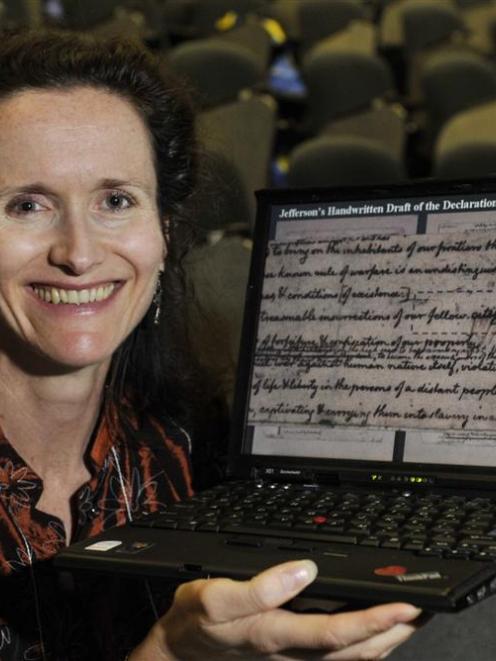 Jefferson's Handwritten Draft of the Declaration
to bring on the inhabitants of our frontiers the
known rule of warfare is an undistinguis
& conditions of existence
treasonable insurrections of our fellow citi
of forfeiture & confiscation of our property
war against human nature itself, violat
of life & liberty in the persons of a distant peopl
captivating & carrying them into slavery in a
X61
ThinkPad